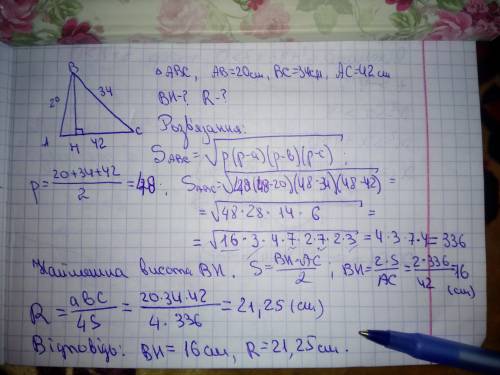 В
20
34
А
Н
42
С
△ ABC, AB=20см, BC=34см, AC=42см
BH-? R-?
Розв'язання:
S_ABC = √p(p-a)(p-b)(p-c);
p = (20+34+42)/2 = 48; S_ABC = √48(48-20)(48-34)(48-42) =
= √48·28·14·6 =
= √16·3·4·7·2·7·2·3 = 4·3·7·4 = 336
Найменша висота BH. S = BH·AC/2; BH = 2·S/AC = 2·336/42 = 16 (см)
R = abc/4S = 20·34·42/4·336 = 21,25 (см)
Відповідь: BH = 16см, R = 21,25см.